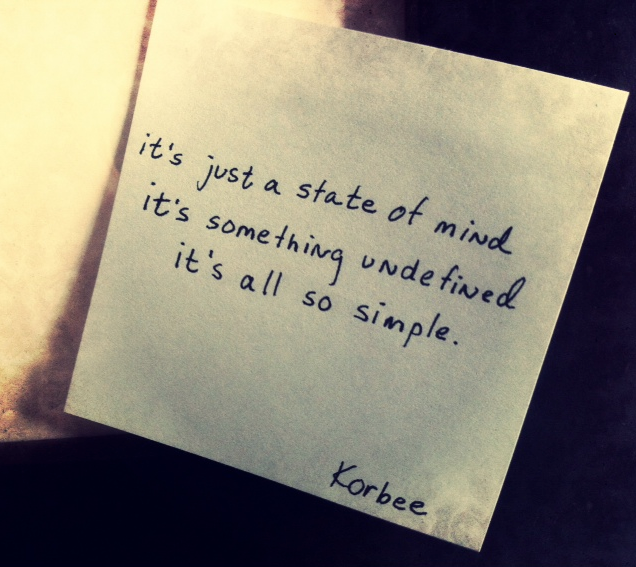 it's just a state of mind
it's something undefined
it's all so simple.
Korbee